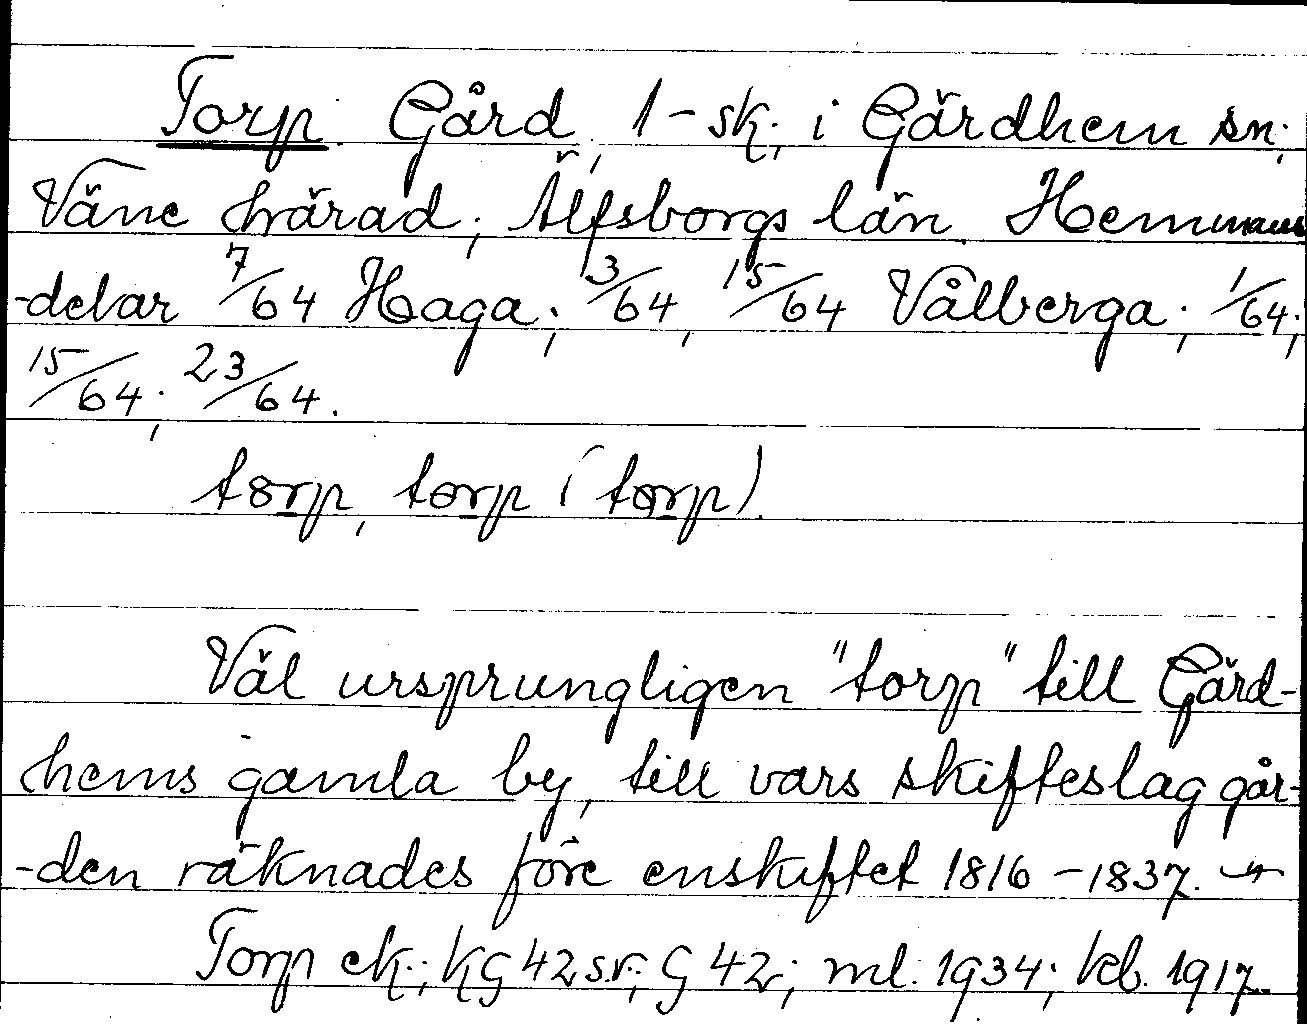 Torp. Gård, 1-sk; i Gärdhem sn;
Väne härad; Älfsborgs län. Hemmans
-delar 7/64 Haga; 3/64, 15/64 Vålberga; 1/64;
15/64; 23/64.
torp, torp (torp).
Väl ursprungligen "torp" till Gärd-
hems gamla by, till vars skifteslag går-
-den räknades före enskiftet 1816-1837.
Torp ek.; KG 42 sv; G 42; ml. 1934; kb. 1917.